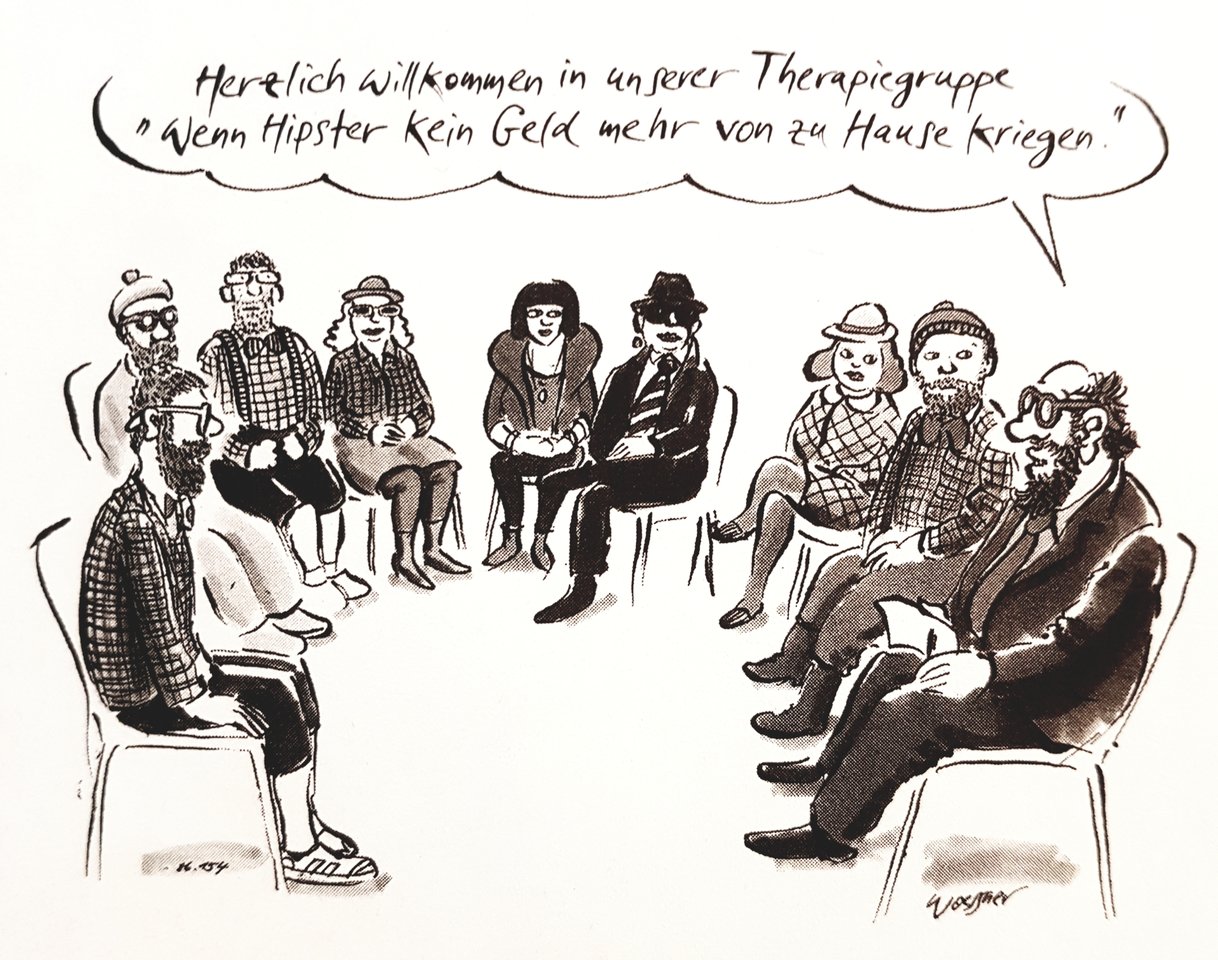 Herzlich willkommen in unserer Therapiegruppe
„Wenn Hipster kein Geld mehr von zu Hause kriegen."
Woessner